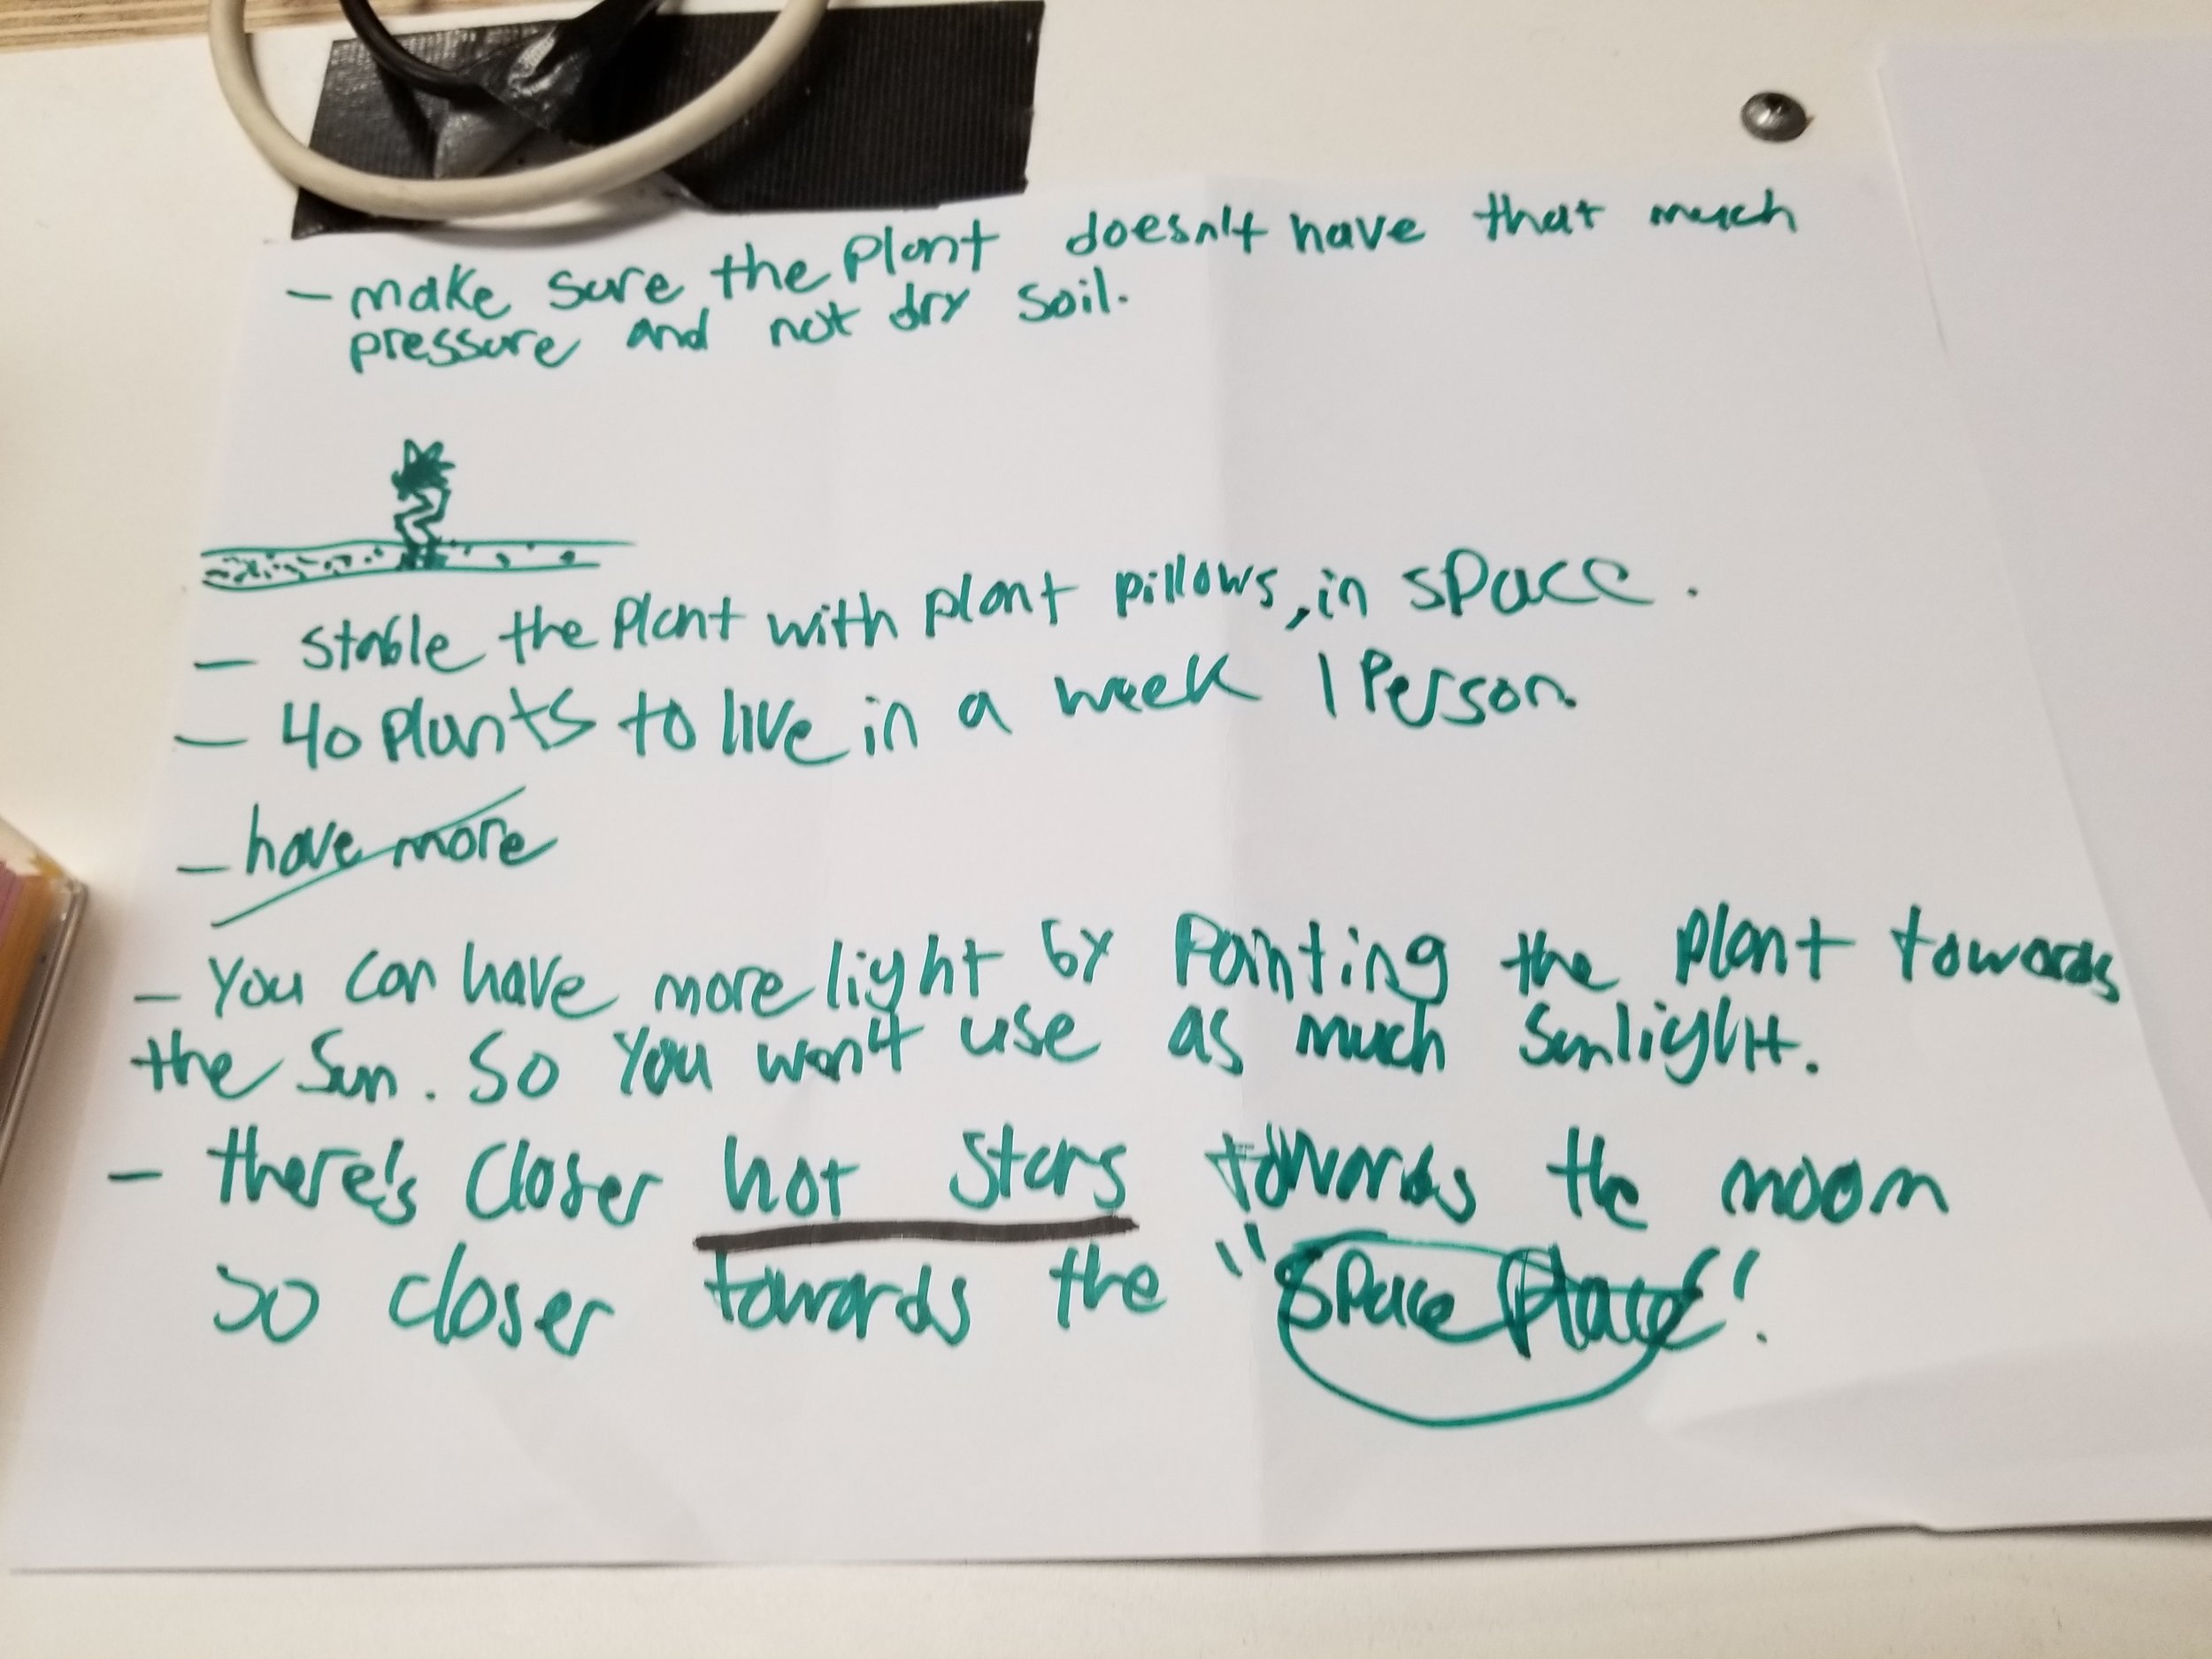 - make sure the plant doesn't have that much
pressure and not dry soil.
- stable the plant with plant pillows, in space.
- 40 plants to live in a week 1 Person.
- have more
- You can have more light by Pointing the plant towards
the Sun. So You won't use as much Sunlight.
- there's closer hot stars towards the moon
so closer towards the "Space Place"!